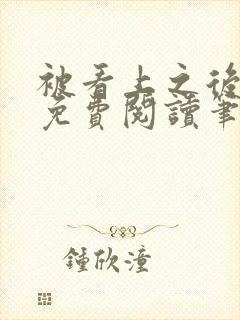 被看上之後
免費閱讀筆
鍾欣潼